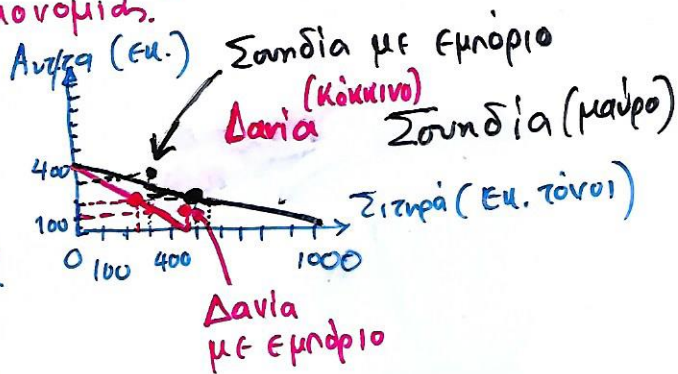 κονομίας.
Αυτ/τα (εκ.)
Σουηδία με εμπόριο
(κόκκινο)
Δανία
Σουηδία (μαύρο)
400
100
Σιτηρά (εκ. τόνοι)
0 100 400 1000
Δανία
με εμπόριο